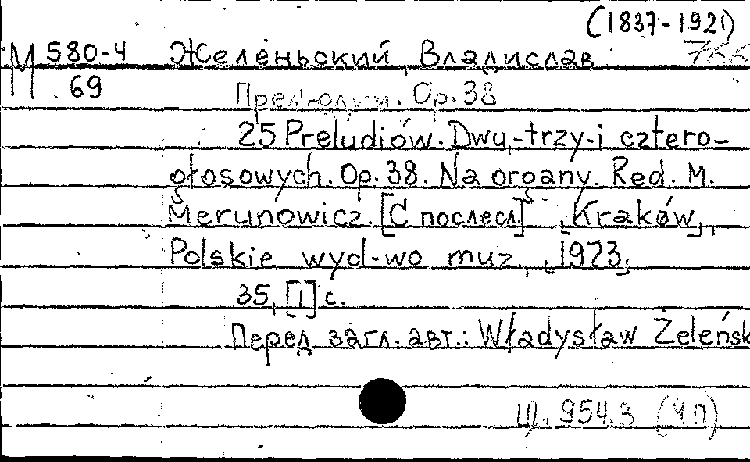 (1837-1921)
М 580-4 Желеньский, Владислав
69 Прелюдии. Op. 38
25 Preludiów. Dwu-, trzy- i cztero-
głosowych. Op. 38. Na organy. Red. M.
Merunowicz. [С послесл] Kraków,
Polskie wyd-wo muz, 1973.
35, [1] с.
Перед загл. авт.: Władysław Żeleńsk
Щ. 954.3 (4П)